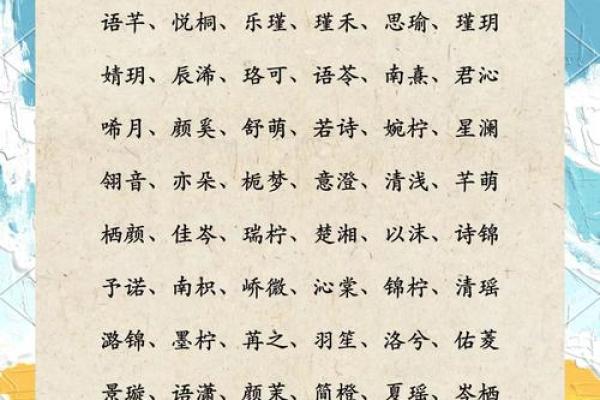 语芊、悦桐、乐瑾、瑾禾、思瑜、瑾玥
婧玥、辰浠、珞可、语苓、南熹、君沁
唏月、颜奚、舒萌、若诗、婉柠、星澜
翎音、亦朵、栀梦、意澄、清浅、芊萌
栖颜、佳岑、瑞柠、楚湘、以沫、诗锦
予诺、南枳、峤微、沁棠、锦柠、清瑶
潞锦、墨柠、苒之、羽笙、洛兮、佑菱
景璇、语潇、颜茉、简橙、夏瑶、岑栖